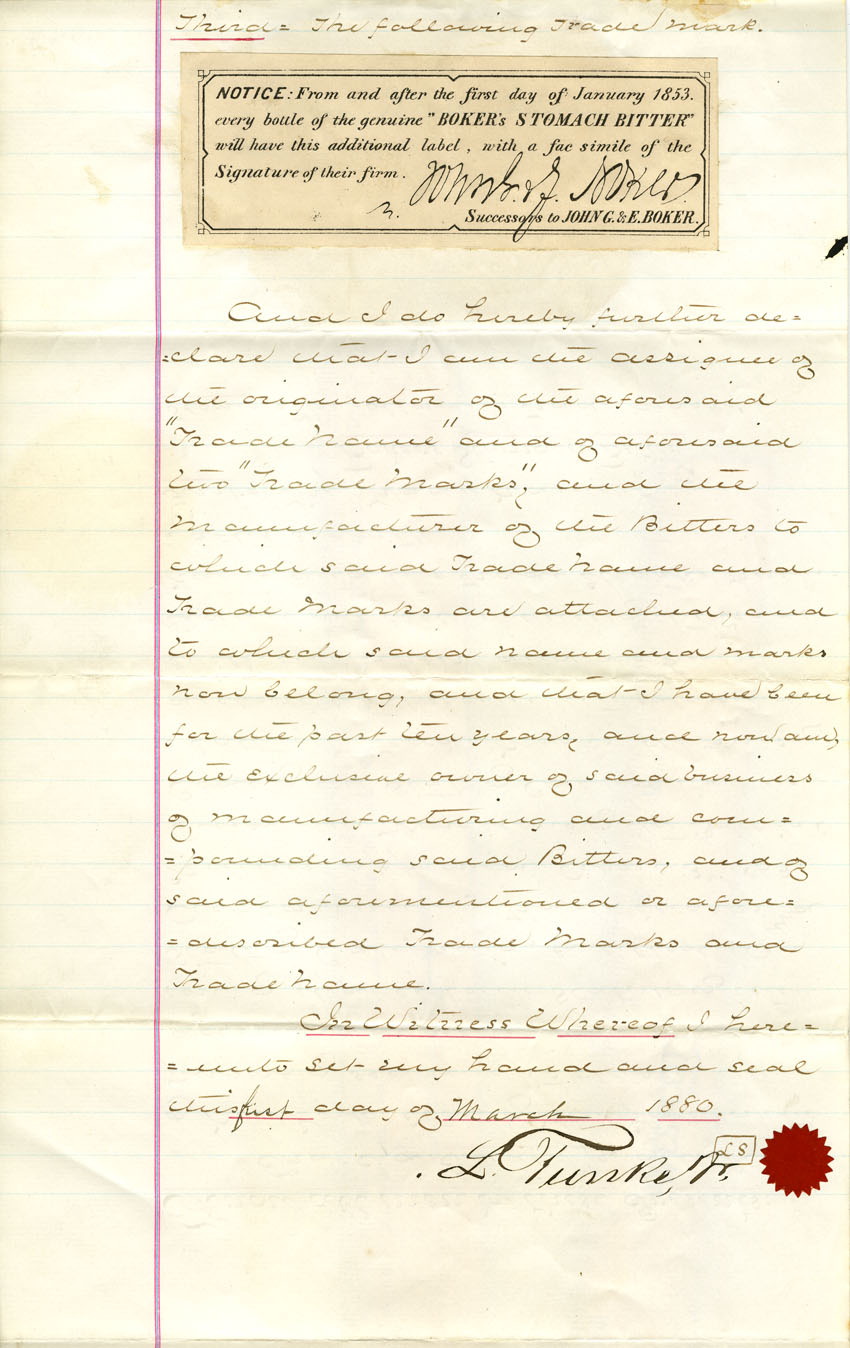 Third = The following Trade Mark.
NOTICE: From and after the first day of January 1853.
every bottle of the genuine "BOKER's STOMACH BITTER"
will have this additional label, with a fac simile of the
Signature of their firm.
Successors to JOHN G. & E. BOKER.
And I do hereby further de=
=clare that I am the assignee of
the originator of the aforesaid
"Trade Name" and of aforesaid
two "Trade Marks", and the
manufacturer of the Bitters to
which said Trade Name and
Trade Marks are attached, and
to which said name and marks
now belong, and that I have been
for the past ten years, and now am,
the exclusive owner of said business
of manufacturing and com=
=pounding said Bitters, and of
said aforementioned or afore=
=described Trade Marks and
Trade Name.
In Witness Whereof I here=
=unto set my hand and seal
this first day of March 1880.
L. Funke, Jr.
LS